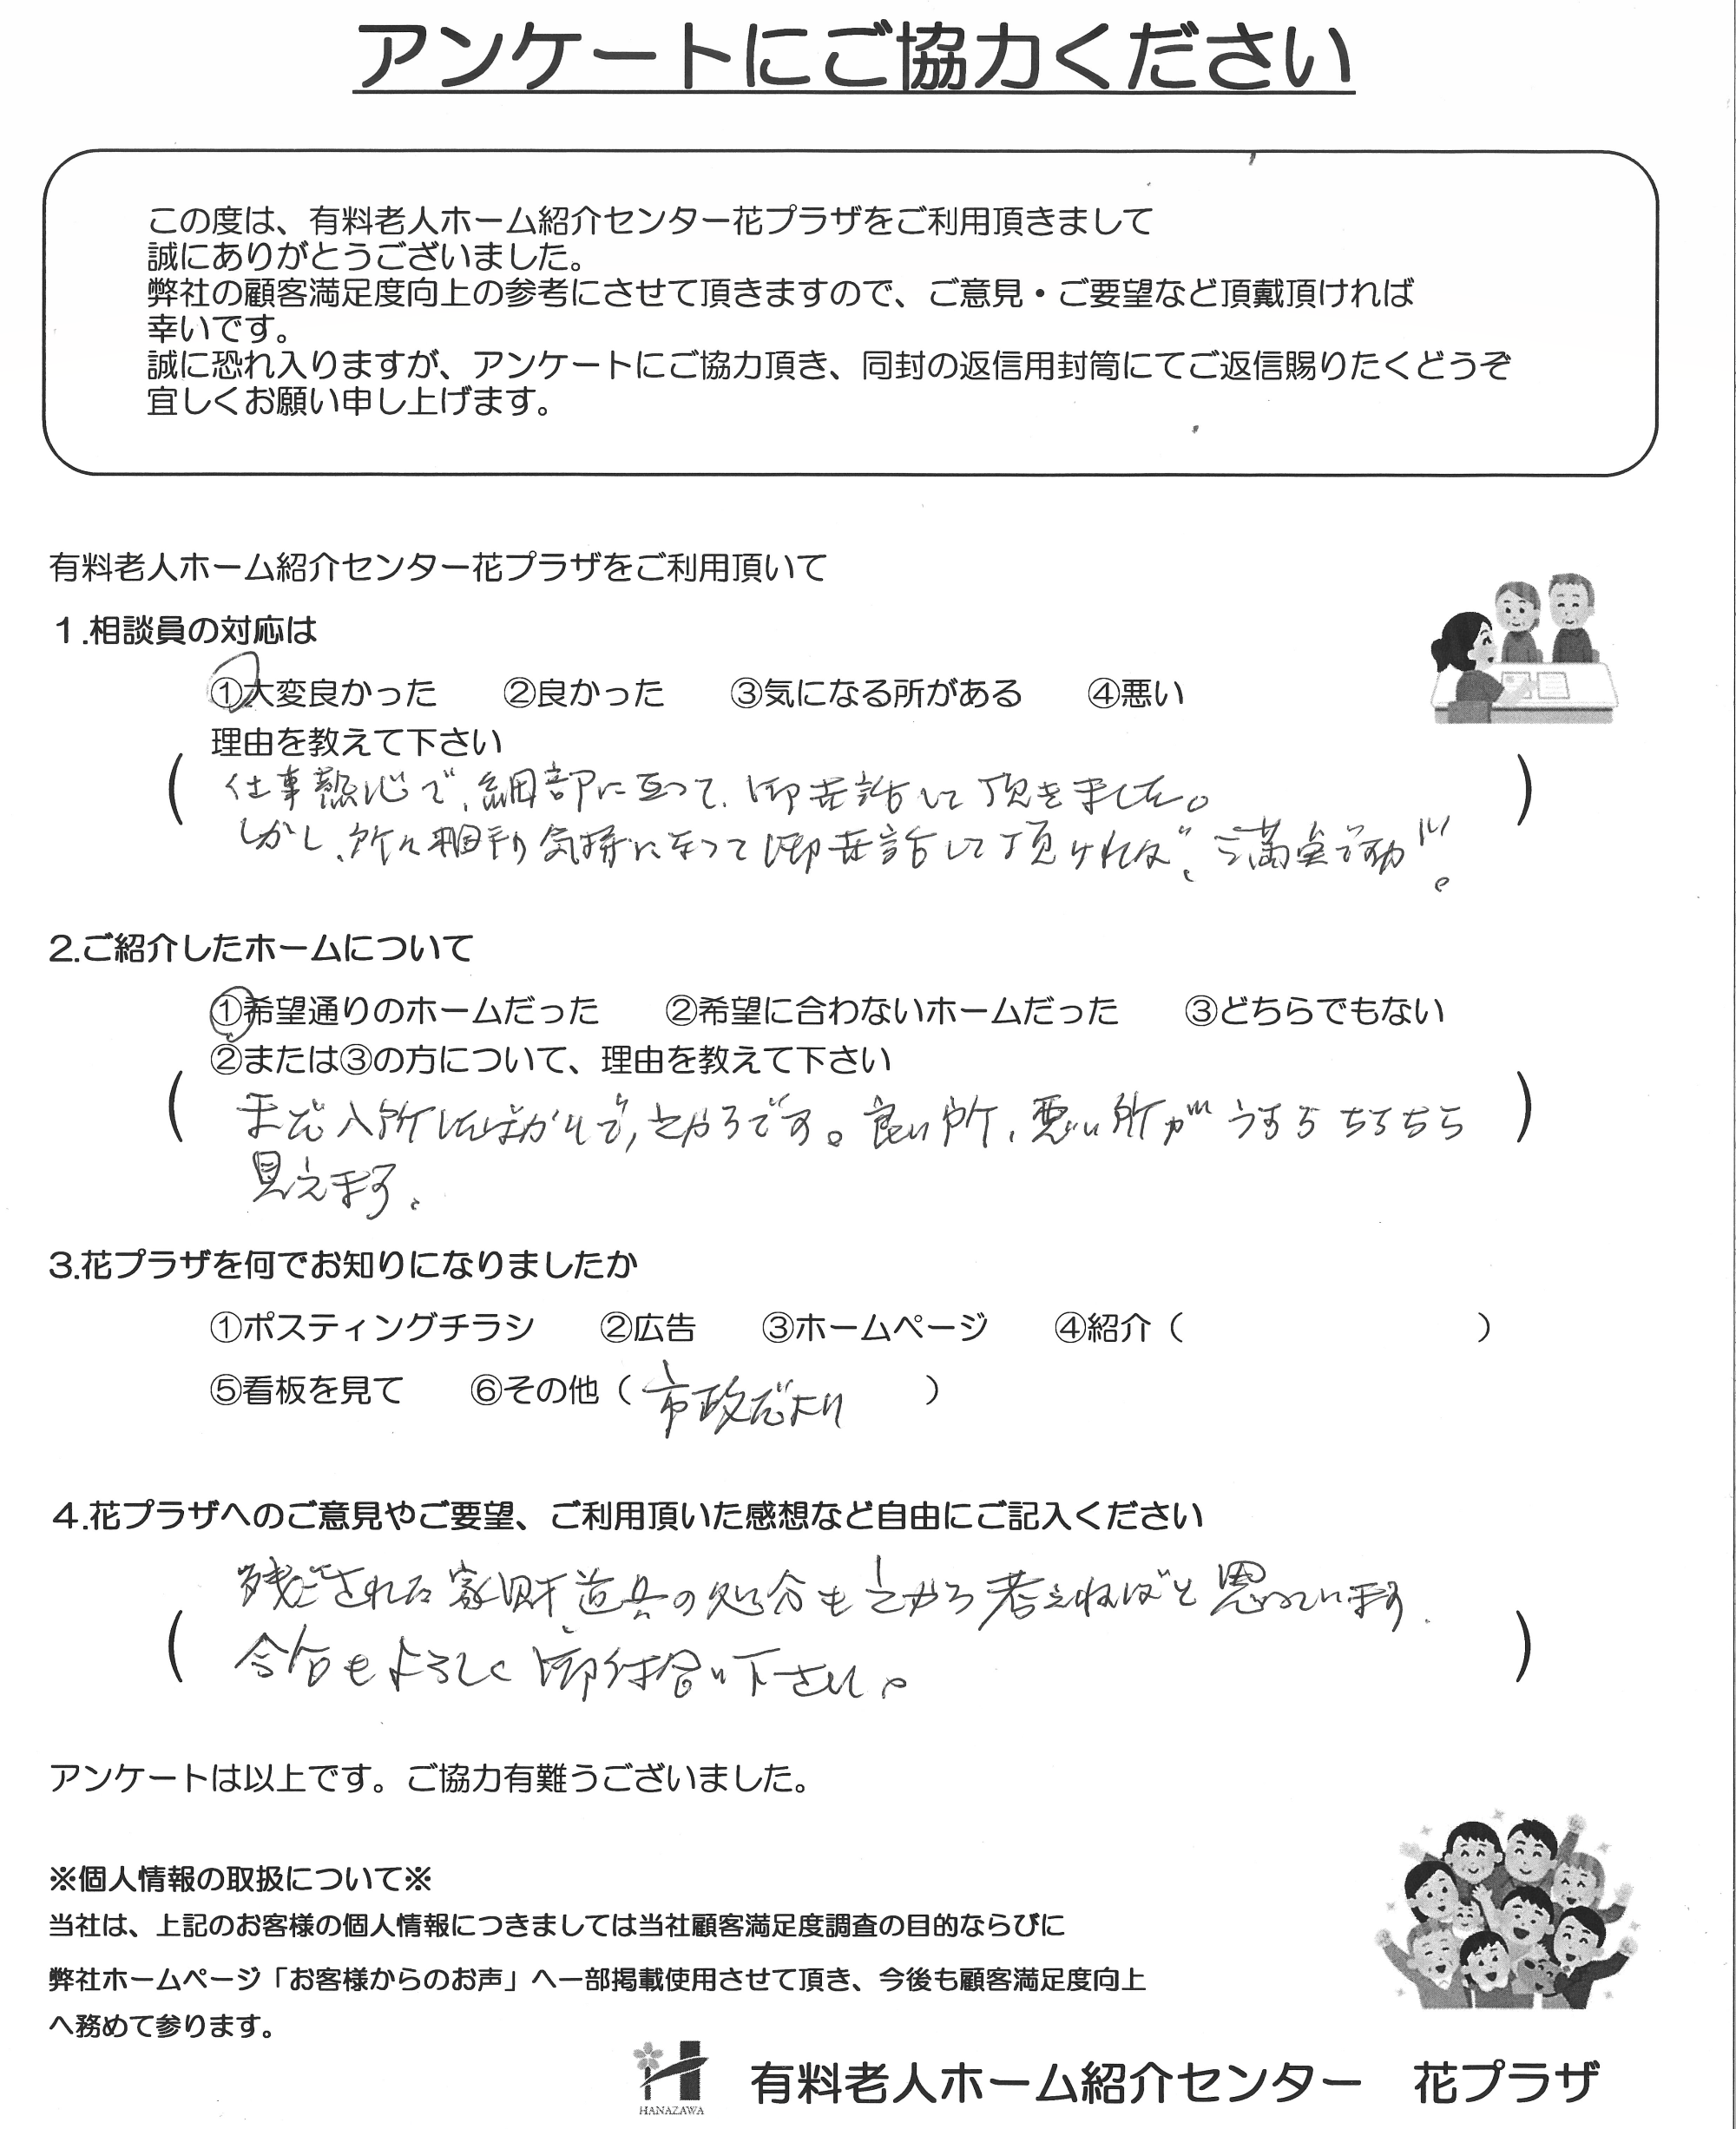 アンケートにご協力ください
この度は、有料老人ホーム紹介センター花プラザをご利用頂きまして
誠にありがとうございました。
弊社の顧客満足度向上の参考にさせて頂きますので、ご意見・ご要望など頂戴頂ければ
幸いです。
誠に恐れ入りますが、アンケートにご協力頂き、同封の返信用封筒にてご返信賜りたくどうぞ
宜しくお願い申し上げます。
有料老人ホーム紹介センター花プラザをご利用頂いて
１.相談員の対応は
①大変良かった ②良かった ③気になる所がある ④悪い
理由を教えて下さい
(仕事熱心で、細部に亙って、御世話して頂きました。)
しかし、所々相手の気持になって御世話して頂ければ、
2.ご紹介したホームについて
①希望通りのホームだった ②希望に合わないホームだった ③どちらでもない
②または③の方について、理由を教えて下さい
(まだ入所したばかりで、これからです。良い所、悪い所が ちらちら)
見えます。
3.花プラザを何でお知りになりましたか
①ポスティングチラシ ②広告 ③ホームページ ④紹介（ ）
⑤看板を見て ⑥その他（市政だより ）
４.花プラザへのご意見やご要望、ご利用頂いた感想など自由にご記入ください
(残された家財道具の処分もこれから考えねばと思っています。
今后もよろしく御付合い下さい。)
アンケートは以上です。ご協力有難うございました。
※個人情報の取扱について※
当社は、上記のお客様の個人情報につきましては当社顧客満足度調査の目的ならびに
弊社ホームページ「お客様からのお声」へ一部掲載使用させて頂き、今後も顧客満足度向上
へ務めて参ります。
HANAZAWA
有料老人ホーム紹介センター 花プラザ